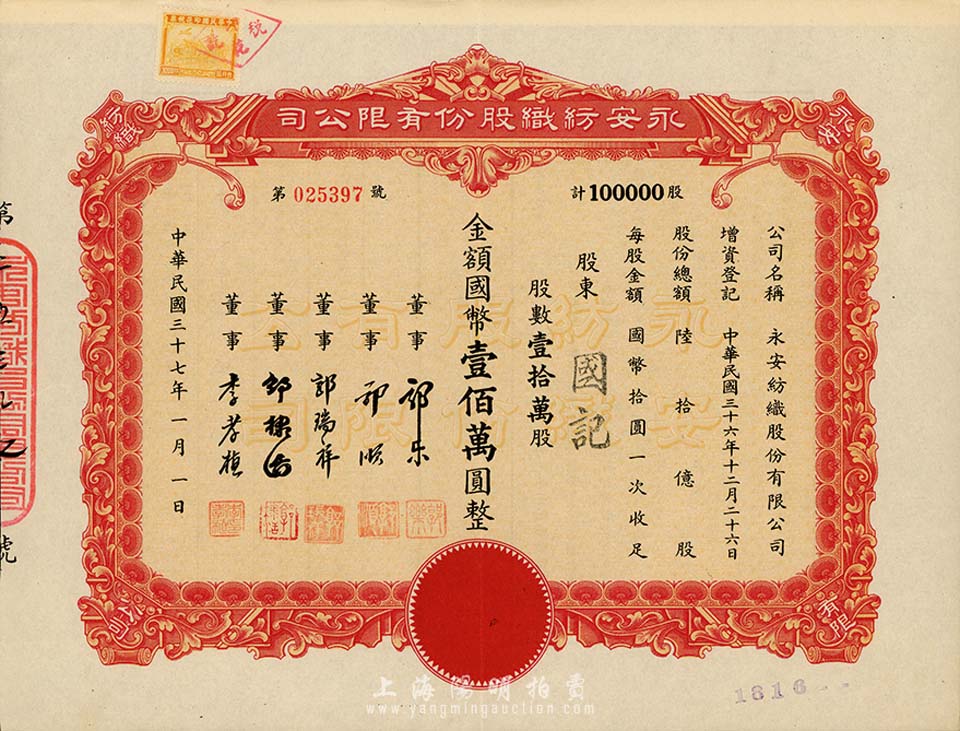 永安紡織股份有限公司
計100000股
第025397號
公司名稱 永安紡織股份有限公司
增資登記 中華民國三十六年十二月二十六日
股份總額 陸拾億股
每股金額 國幣拾圓一次收足
股東 國記
股數壹拾萬股
金額國幣壹佰萬圓整
董事 郭乐
董事 郭順
董事 郭瑞祥
董事 郭棣活
董事 李孝植
中華民國三十七年一月一日
永安
紡織
有限
公司
1816--
上海陽明拍賣
www.yangmingauction.com